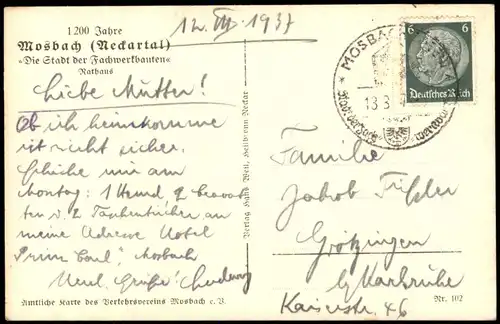 1200 Jahre
Mosbach (Neckartal)
»Die Stadt der Fachwerkbauten«
Rathaus
12. III. 1937
Liebe Mutter!
Ob ich heimkomme
ist nicht sicher.
Schicke mir am
Montag: 1 Hemd,
ten u. 2 Taschentücher an
meine Adresse Hotel
"Prinz Carl", Mosbach
Herzl. Grüße! Ludwig
Amtliche Karte des Verkehrsvereins Mosbach e. V.
Verlag Hans Weil, Heilbronn-Neckar
MOSBACH
13.3.
Stadt der Fachwerkbauten
6 6
Deutsches Reich
Familie
Jakob
Grötzingen
b/ Karlsruhe
Kaiserstr. 46
Nr. 102